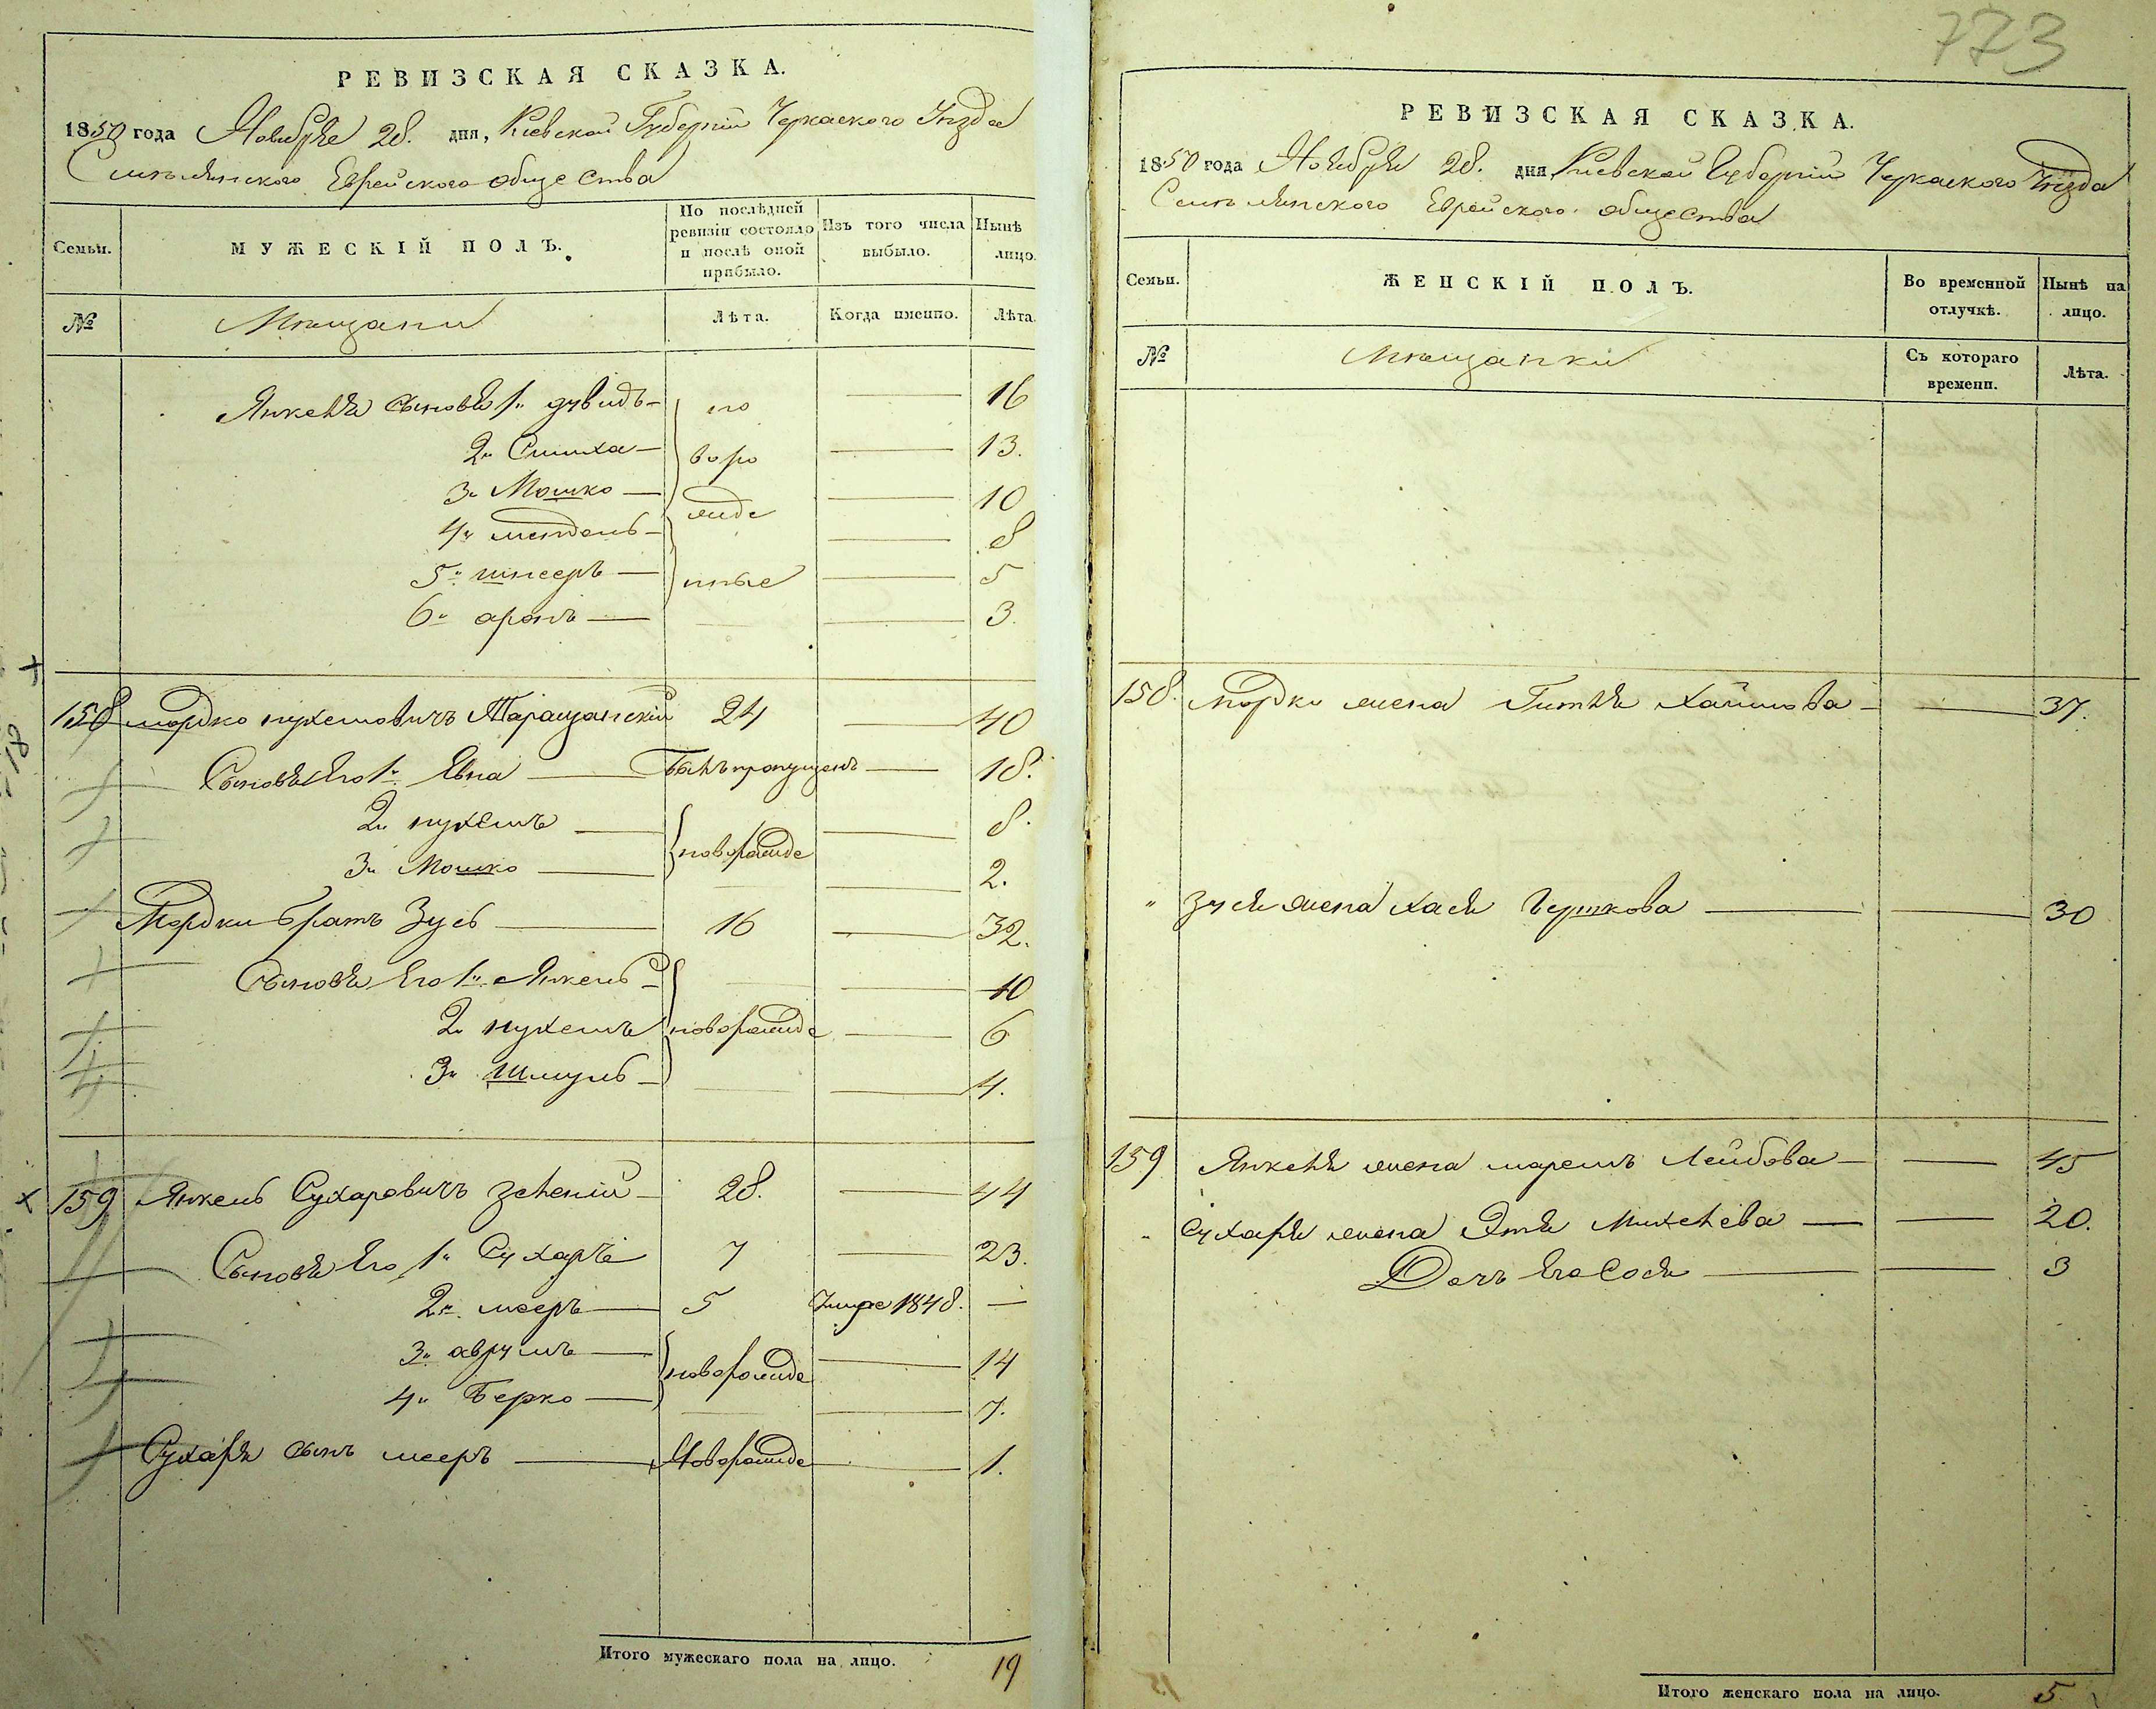 РЕВИЗСКАЯ СКАЗКА.
1850 года Ноября 28. дня, Киевской Губерніи Черкаского Уѣзда
Смѣлянского Еврейского общества
Семьи.
МУЖЕСКІЙ ПОЛЪ.
По послѣдней ревизіи состояло и послѣ оной прибыло.
Изъ того числа выбыло.
Нынѣ лицо.
№
Мѣщани
Лѣта.
Когда именно.
Лѣта.
Янкеля сыновья 1" дувидъ — но — 16
2" Симха — воро — 13.
3" Мошко — жде — 10
4" мендель — 8
5" шнееръ — нные — 5
6" аронъ — 3.
158 мордко нухемовичъ Таращанскій 24 — 40
Сыновья Его 1" Евна — Былъ пропущенъ — 18.
2" нухемъ — 8.
новорожде
3" Мошко — 2.
Мордки братъ Зусь — 16 — 32.
Сыновья Его 1" Янкель — 10
2" нухемъ новорожде — 6
3" Шмуль — 4.
159 Янкель Сухаровичъ Зеленій — 28. — 44
Сыновья Его 1" Сухаръ 7 — 23.
2" мееръ — 5 Умре 1848. —
3" аврумъ — 14
новорожде
4" Берко — 7.
Сухаря сынъ мееръ — Новорожде — 1.
Итого мужескаго пола на лицо. 19
773
РЕВИЗСКАЯ СКАЗКА.
1850 года Ноября 28. дня, Киевской Губерніи Черкаского Уѣзда
Смѣлянского Еврейского общества
Семьи.
ЖЕНСКІЙ ПОЛЪ.
Во временной отлучкѣ.
Нынѣ на лицо.
№
Мѣщанки
Съ котораго времени.
Лѣта.
158. Мордки жена Гитля Хаимова — 37.
" Зуся жена Хася Берткова — 30
159 Янкеля жена маремъ Лейбова — 45
" Сухаря жена Этя Михелева — 20.
Дочь Его Сося — 3
Итого женскаго пола на лицо. 5